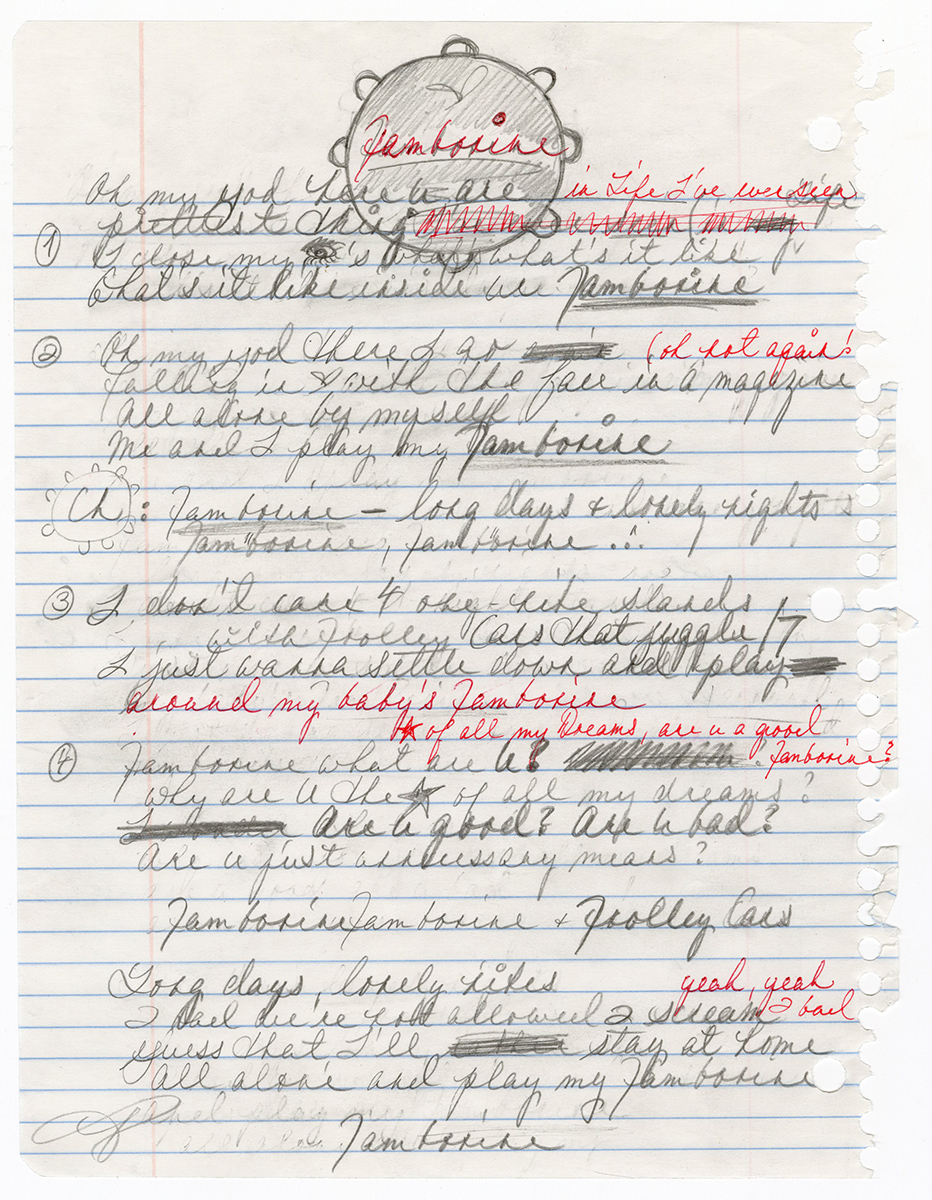 Tamborine
Oh my God here u are
in Life I've ever seen
prettiest thing Life
① I close my 's what's it like
What's it like inside ur Tamborine
② Oh my God there I go (oh not again!
Falling in with the face in a magazine
All alone by myself
Me and I play my Tamborine
Ch: Tamborine — long days & lonely nights
Tamborine, Tamborine ...
③ I don't care 4 one-nite stands
with Trolley Cars that juggle 17
I just wanna settle down and play
around my baby's Tamborine
of all my Dreams, are u a good
④ Tamborine what are U? Tamborine?
Why are U the of all my dreams?
Are u good? Are u bad?
Are u just unnecessary means?
Tamborine Tamborine & Trolley Cars
Long days, lonely nites yeah, yeah
2 bad we're not allowed 2 scream 2 bad
guess that I'll stay at home
All alone and play my Tamborine
and play my
Tamborine